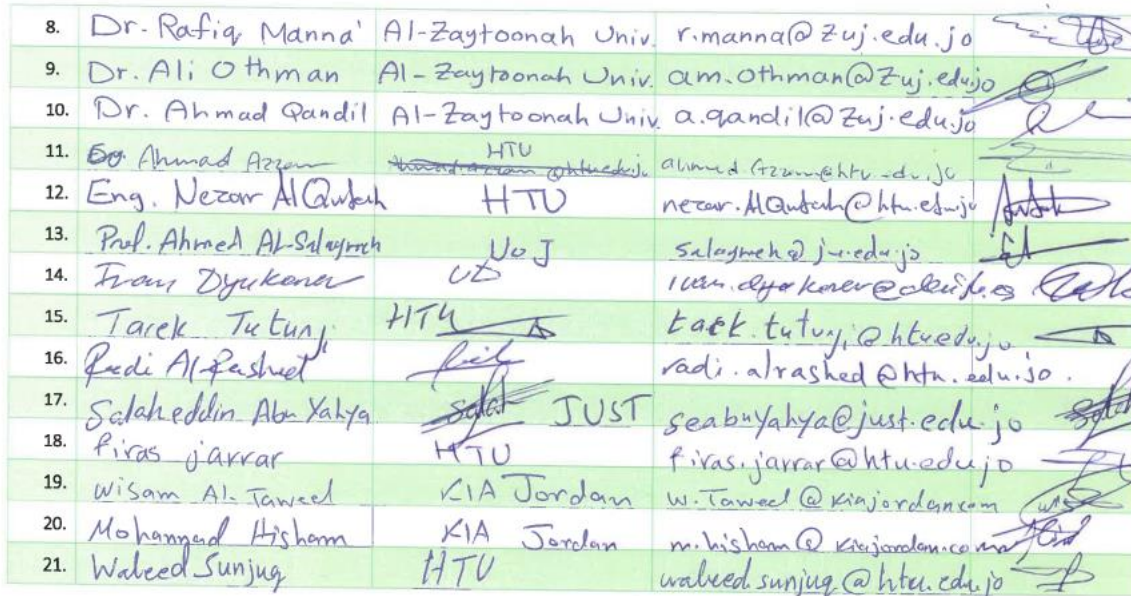 8. Dr. Rafiq Manna' Al-Zaytoonah Univ. r.manna@zuj.edu.jo
9. Dr. Ali Othman Al-Zaytoonah Univ. am.othman@Zuj.edu.jo
10. Dr. Ahmad Qandil Al-Zaytoonah Univ. a.qandil@zuj.edu.jo
11. Ahmad Azzam HTU
12. Eng. Nezar AlQutah HTU
13. Prof. Ahmed Al-Salaymeh UoJ salaymeh@ju.edu.jo
14. UD
15. Tarek Tutunji HTU
16. Radi Al-Rashed radi.alrashed@htu.edu.jo.
17. Salaheddin Abu Yahya JUST seabuYahya@just.edu.jo
18. firas jarrar HTU firas.jarrar@htu.edu.jo
19. Wisam Al-Taweel KIA Jordan w.Taweel@kiajordan.com
20. Mohammad Hisham KIA Jordan m.hisham@kiajordan.com
21. Waleed Sunjuq HTU waleed.sunjuq@htu.edu.jo